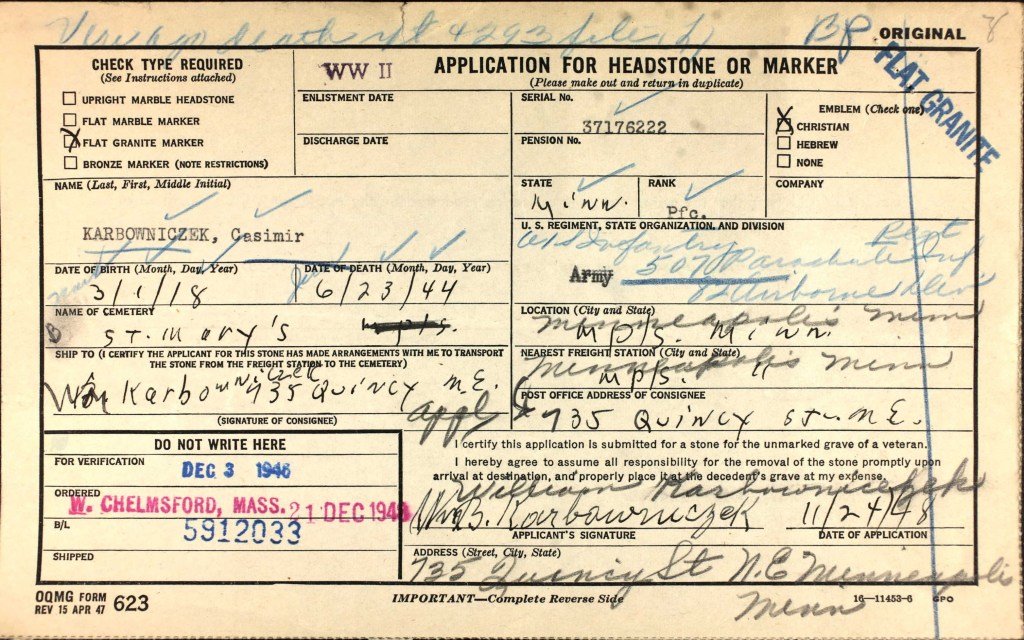 ORIGINAL
BP
FLAT GRANITE
CHECK TYPE REQUIRED
(See Instructions attached)
UPRIGHT MARBLE HEADSTONE
FLAT MARBLE MARKER
X FLAT GRANITE MARKER
BRONZE MARKER (NOTE RESTRICTIONS)
WW II
APPLICATION FOR HEADSTONE OR MARKER
(Please make out and return in duplicate)
ENLISTMENT DATE
DISCHARGE DATE
SERIAL No.
37176222
PENSION No.
EMBLEM (Check one)
X CHRISTIAN
HEBREW
NONE
NAME (Last, First, Middle Initial)
KARBOWNICZEK, Casimir
STATE
Minn.
RANK
Pfc.
COMPANY
U. S. REGIMENT, STATE ORGANIZATION, AND DIVISION
Infantry
Army 507 Parachute Inf
Airborne Div
DATE OF BIRTH (Month, Day, Year)
3/1/18
DATE OF DEATH (Month, Day, Year)
6/23/44
NAME OF CEMETERY
ST. Mary's
LOCATION (City and State)
Minneapolis Minn
Mpls. Minn.
NEAREST FREIGHT STATION (City and State)
Minneapolis Minn
Mpls. "
SHIP TO (I CERTIFY THE APPLICANT FOR THIS STONE HAS MADE ARRANGEMENTS WITH ME TO TRANSPORT
THE STONE FROM THE FREIGHT STATION TO THE CEMETERY)
Wm Karbowniczek 735 Quincy N.E.
(SIGNATURE OF CONSIGNEE)
appl
POST OFFICE ADDRESS OF CONSIGNEE
735 Quincy St. N.E.
I certify this application is submitted for a stone for the unmarked grave of a veteran.
I hereby agree to assume all responsibility for the removal of the stone promptly upon
arrival at destination, and properly place it at the decedent's grave at my expense.
William Karbowniczek
Wm B. Karbowniczek 11/24/48
APPLICANT'S SIGNATURE
DATE OF APPLICATION
DO NOT WRITE HERE
FOR VERIFICATION
DEC 3 1948
ORDERED
W. CHELMSFORD, MASS. 21 DEC 194
B/L
5912033
SHIPPED
ADDRESS (Street, City, State)
735 Quincy St N.E Minneapolis
Minn
OQMG FORM
REV 15 APR 47 623
IMPORTANT—Complete Reverse Side
16—11453-6 GPO